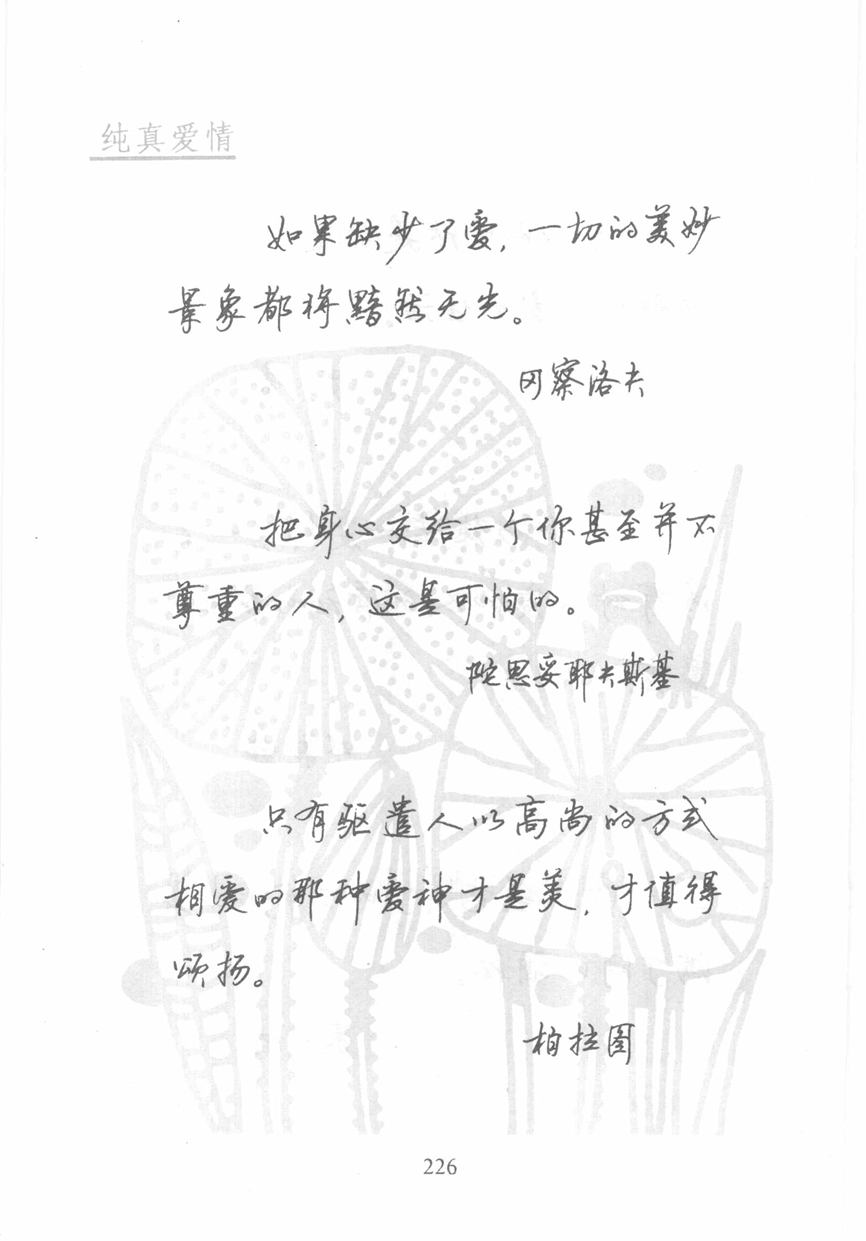 纯真爱情
如果缺少了爱，一切的美妙
景象都将黯然无光。
冈察洛夫
把身心交给一个你甚至并不
尊重的人，这是可怕的。
陀思妥耶夫斯基
只有驱遣人以高尚的方式
相爱的那种爱神才是美，才值得
颂扬。
柏拉图
226